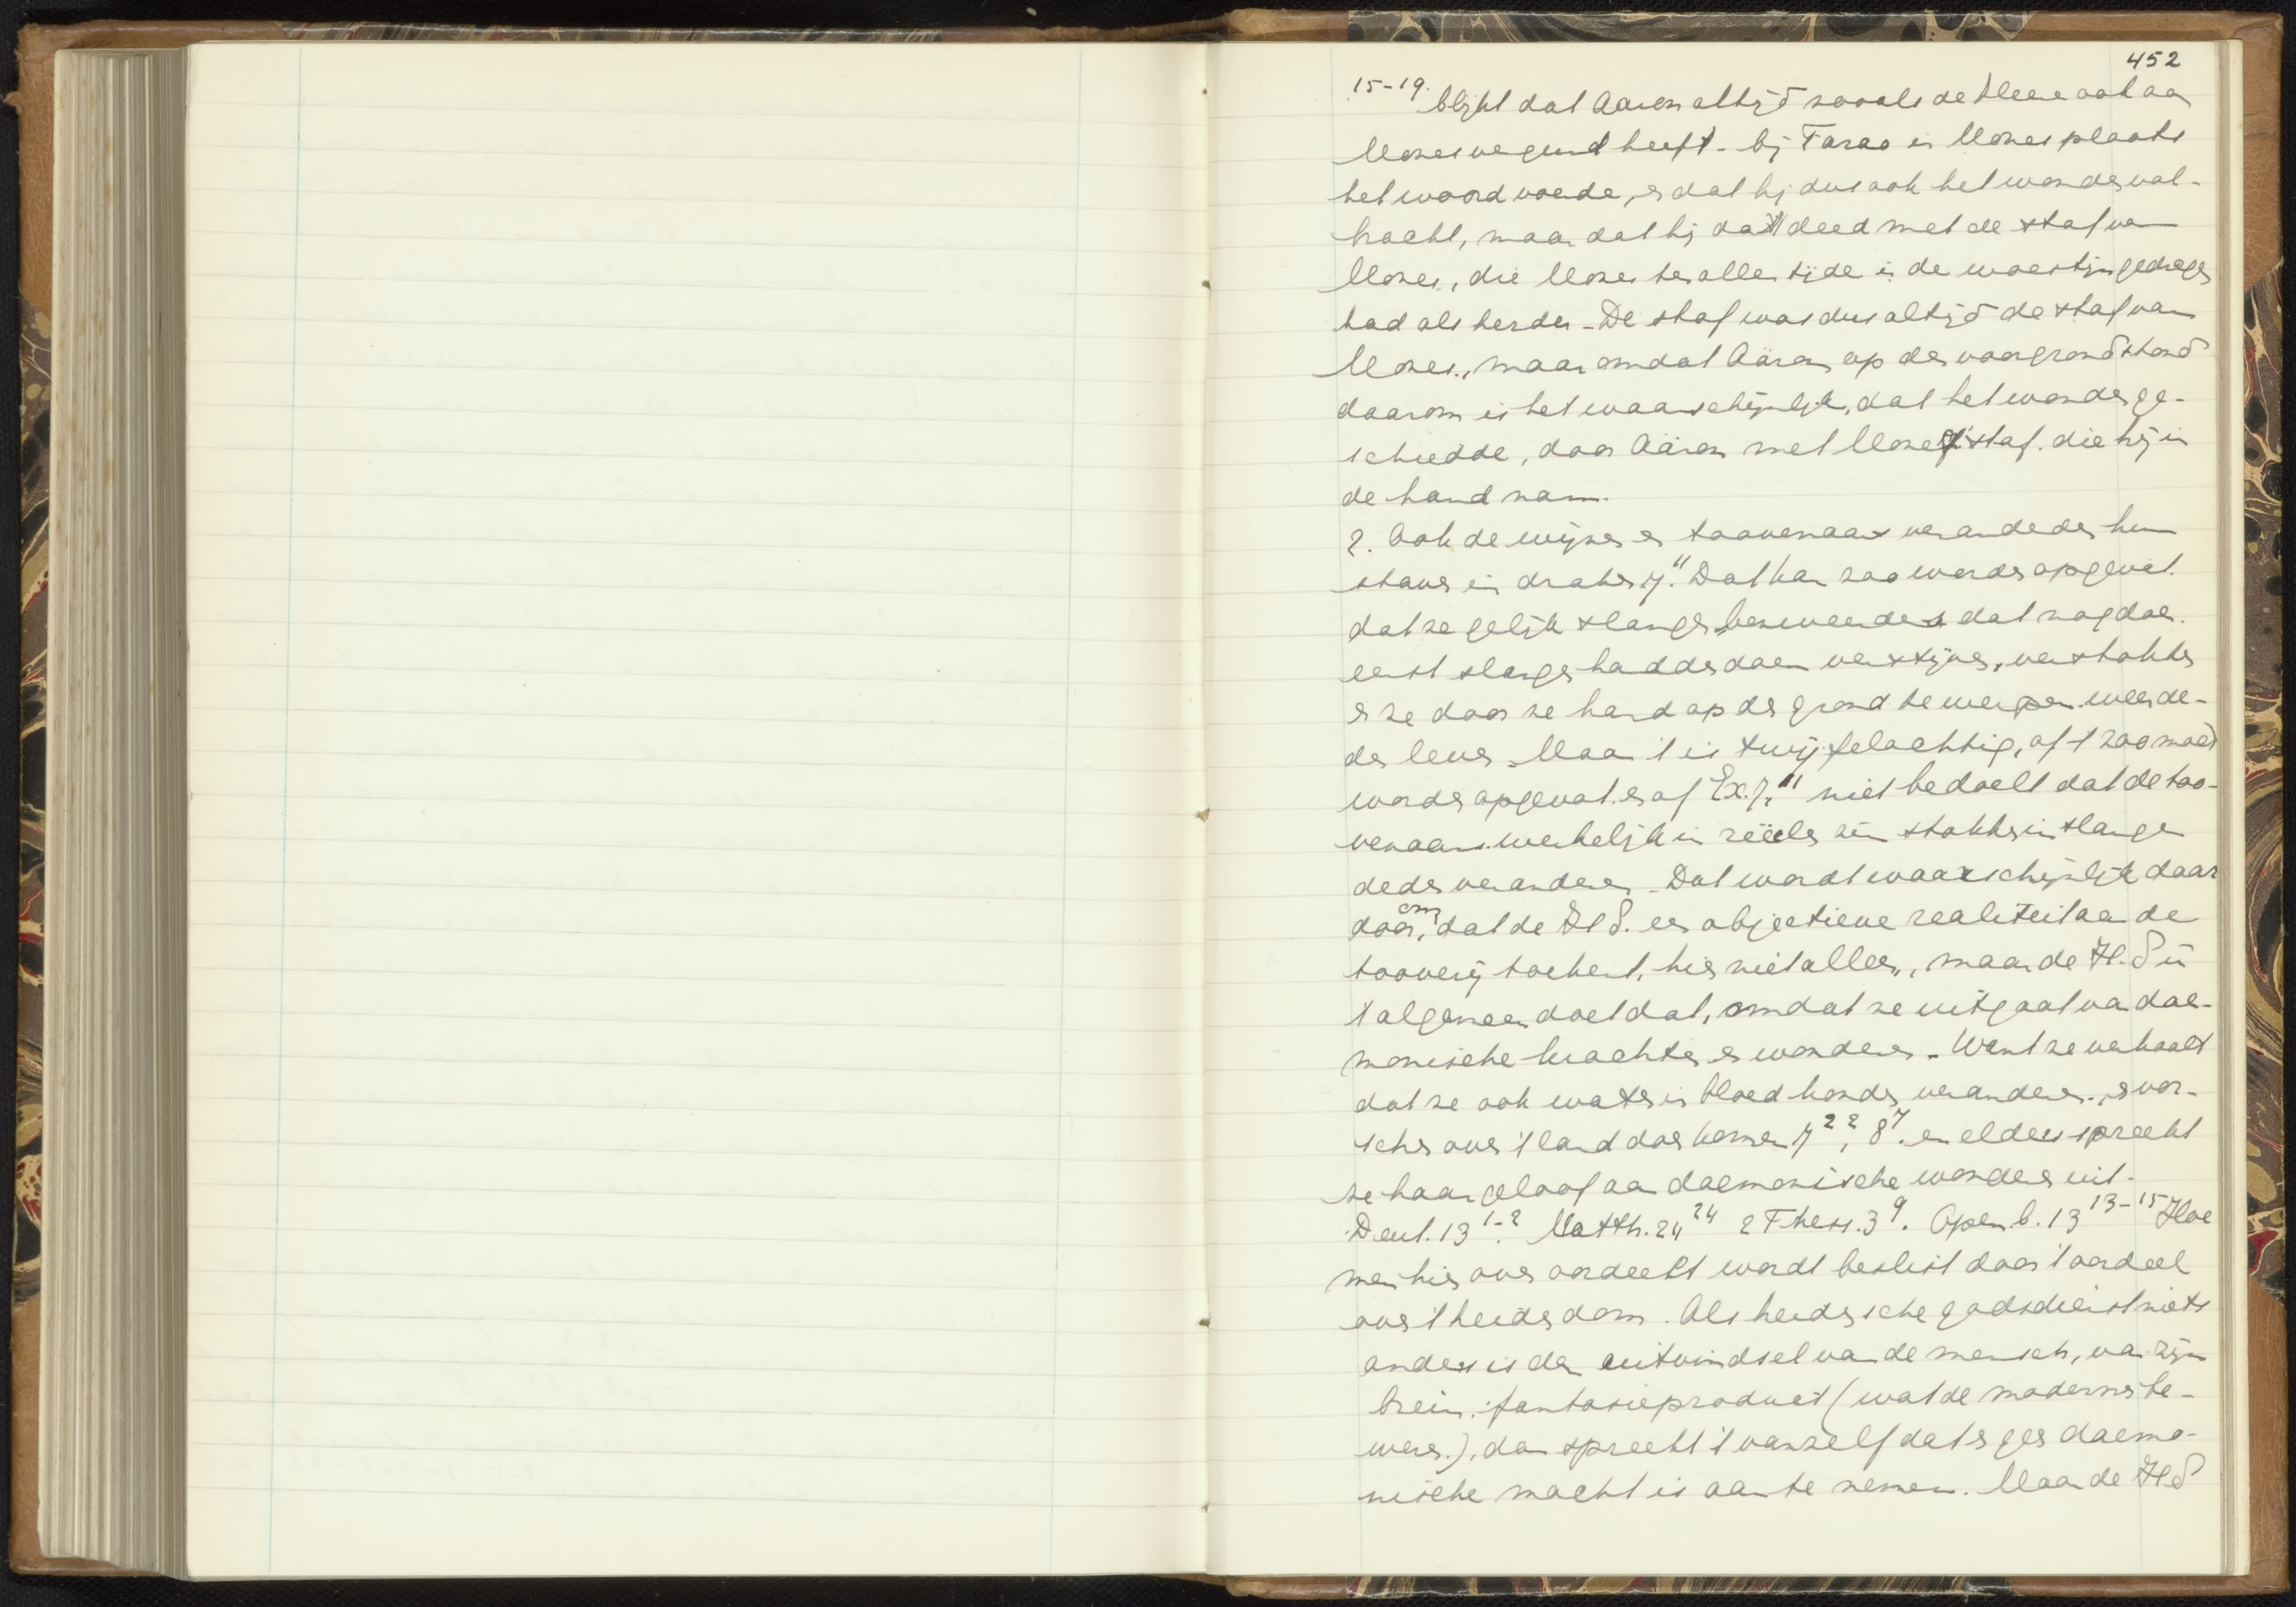 452
15-19. blijkt dat Aäron altijd zooals de Heere ook aan
Mozes vergund heeft - bij Farao in Mozes plaats
het woord voerde, en dat hij dus ook het wonder vol-
bracht, maar dat hij dat deed met de staf van
Mozes, die Mozes ten allen tijde in de woestijn gedragen
had als herder - De staf was dus altijd de staf van
Mozes, maar omdat Aäron op den voorgrond stond
daarom is het waarschijnlijk, dat het wonder ge-
schiedde, door Aäron met Mozes' staf. die hij in
de hand nam.
2. Ook de wijzen en toovenaars veranderden hun
staven in draken 7.11 Dat kan zoo worden opgevat.
dat ze gelijk slangenbezweerders dat nog doen.
eerst slangen hadden doen verstijven, verstokten
en ze door ze hard op den grond te werpen weer de-
den leven. Maar 't is twijfelachtig, of 't zoo moet
worden opgevat. en of Ex. 7.11 niet bedoelt dat de too-
venaars werkelijk in reëelen zin stokken in slangen
deden veranderen. Dat wordt waarschijnlijk daar
door, omdat de H.S. een objectieve realiteit aan de
tooverij toekent, hier niet alleen, maar de H.S in
't algemeen doet dat, omdat ze uitgaat van dae-
monische krachten en wonderen. Want ze verhaalt
dat ze ook water in bloed konden veranderen, en vor-
schen over 't land doen komen 7 22, 8 7. en elders spreekt
ze haar geloof aan daemonische wonderen uit.
Deut. 13 1-2. Matth. 24 24 2 Thess. 3 9. Openb. 13 13-15 Hoe
men hier over oordeelt wordt beslist door 't oordeel
over 't heidendom. Als heidensche godsdienst niets
anders is dan uitvindsel van de mensch, van zijn
brein. fantasieproduct (wat de modernen be-
weren), dan spreekt 't vanzelf dat er geen daemo-
nische macht is aan te nemen. Maar de H.S